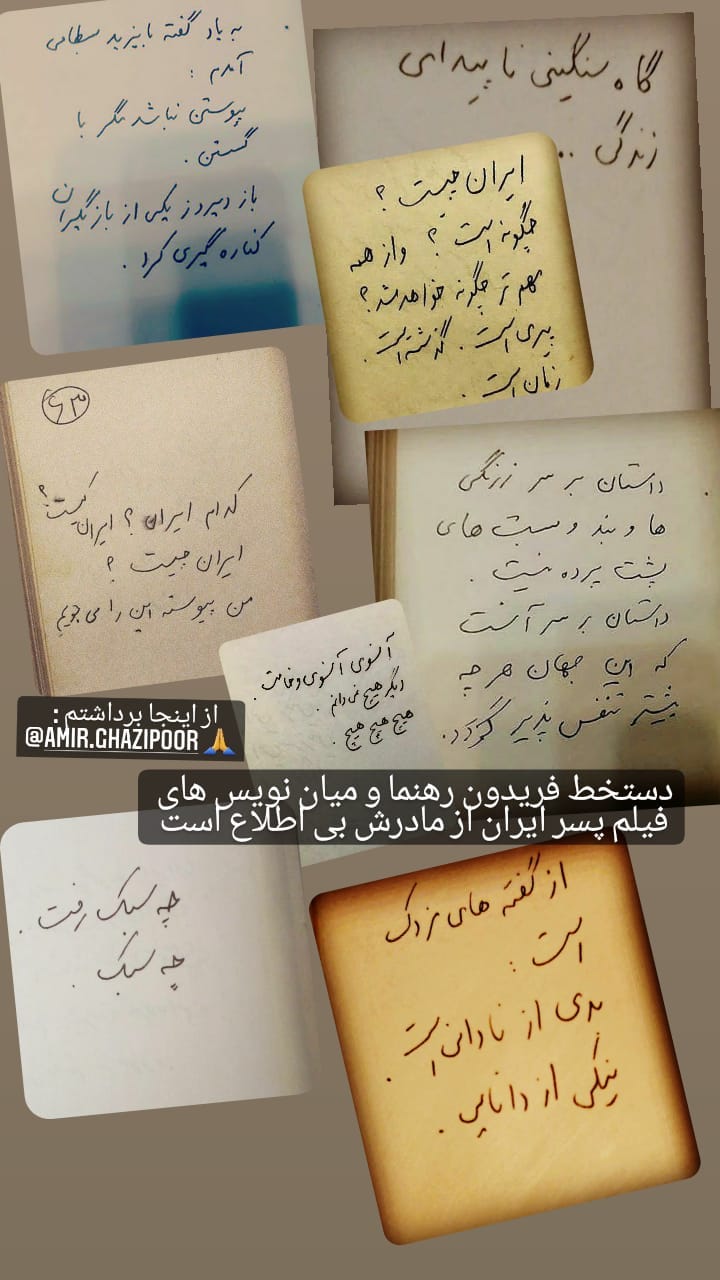 به یاد گفته بایزید بسطامی
آمدم :
پیوستن نباشد مگر با
گسستن .
باز دیروز یکی از بازیگران
کناره گیری کرد .
گاه سنگینی ناپیدای
زندگی ..
ایران چیست ؟
چگونه است ؟ و از همه
مهم تر چگونه خواهد شد ؟
پیری است . گذشته است .
زمان است .
۶۳
کدام ایران ؟ ایران کیست ؟
ایران چیست ؟
من پیوسته این را می جویم
داستان بر سر زرنگی
ها و بند و بست های
پشت پرده نیست .
داستان بر سر آنست
که این جهان هر چه
بیشتر تنفس پذیر گردد .
آنسوی آنسوی
دیگر هیچ نمی دانم .
هیچ هیچ هیچ .
از اینجا برداشتم :
@AMIR.GHAZIPOOR 🙏
دستخط فریدون رهنما و میان نویس های
فیلم پسر ایران از مادرش بی اطلاع است
چه سبک رفت .
چه سبک .
از گفته های مزدک
است :
بدی از نادانی است .
نیکی از دانایی .